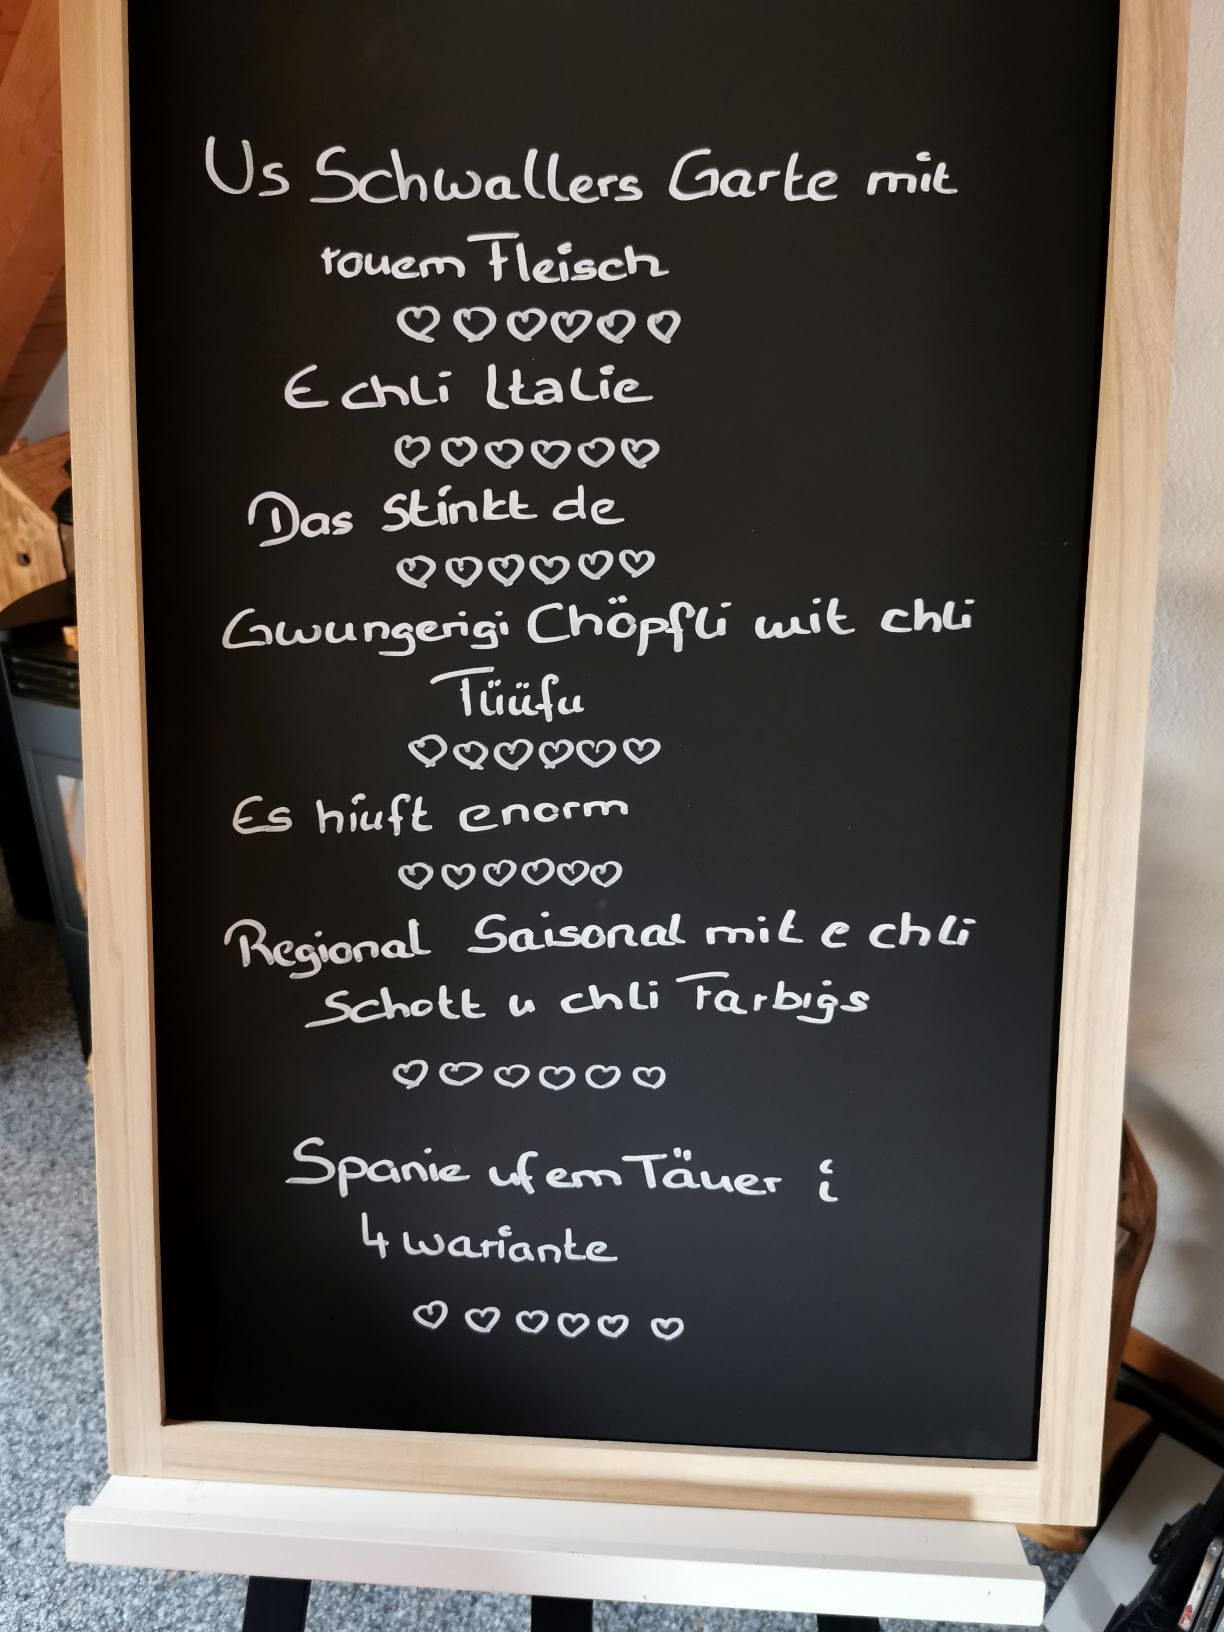 Us Schwallers Garte mit
rouem Fleisch
♡♡♡♡♡♡
E chli Italie
♡♡♡♡♡♡
Das stinkt de
♡♡♡♡♡♡
Gwungerigi Chöpfli mit chli
Tüüfu
♡♡♡♡♡♡
Es hiuft enorm
♡♡♡♡♡♡
Regional Saisonal mit e chli
Schott u chli Farbigs
♡♡♡♡♡♡
Spanie uf em Täuer i
4 wariante
♡♡♡♡♡♡